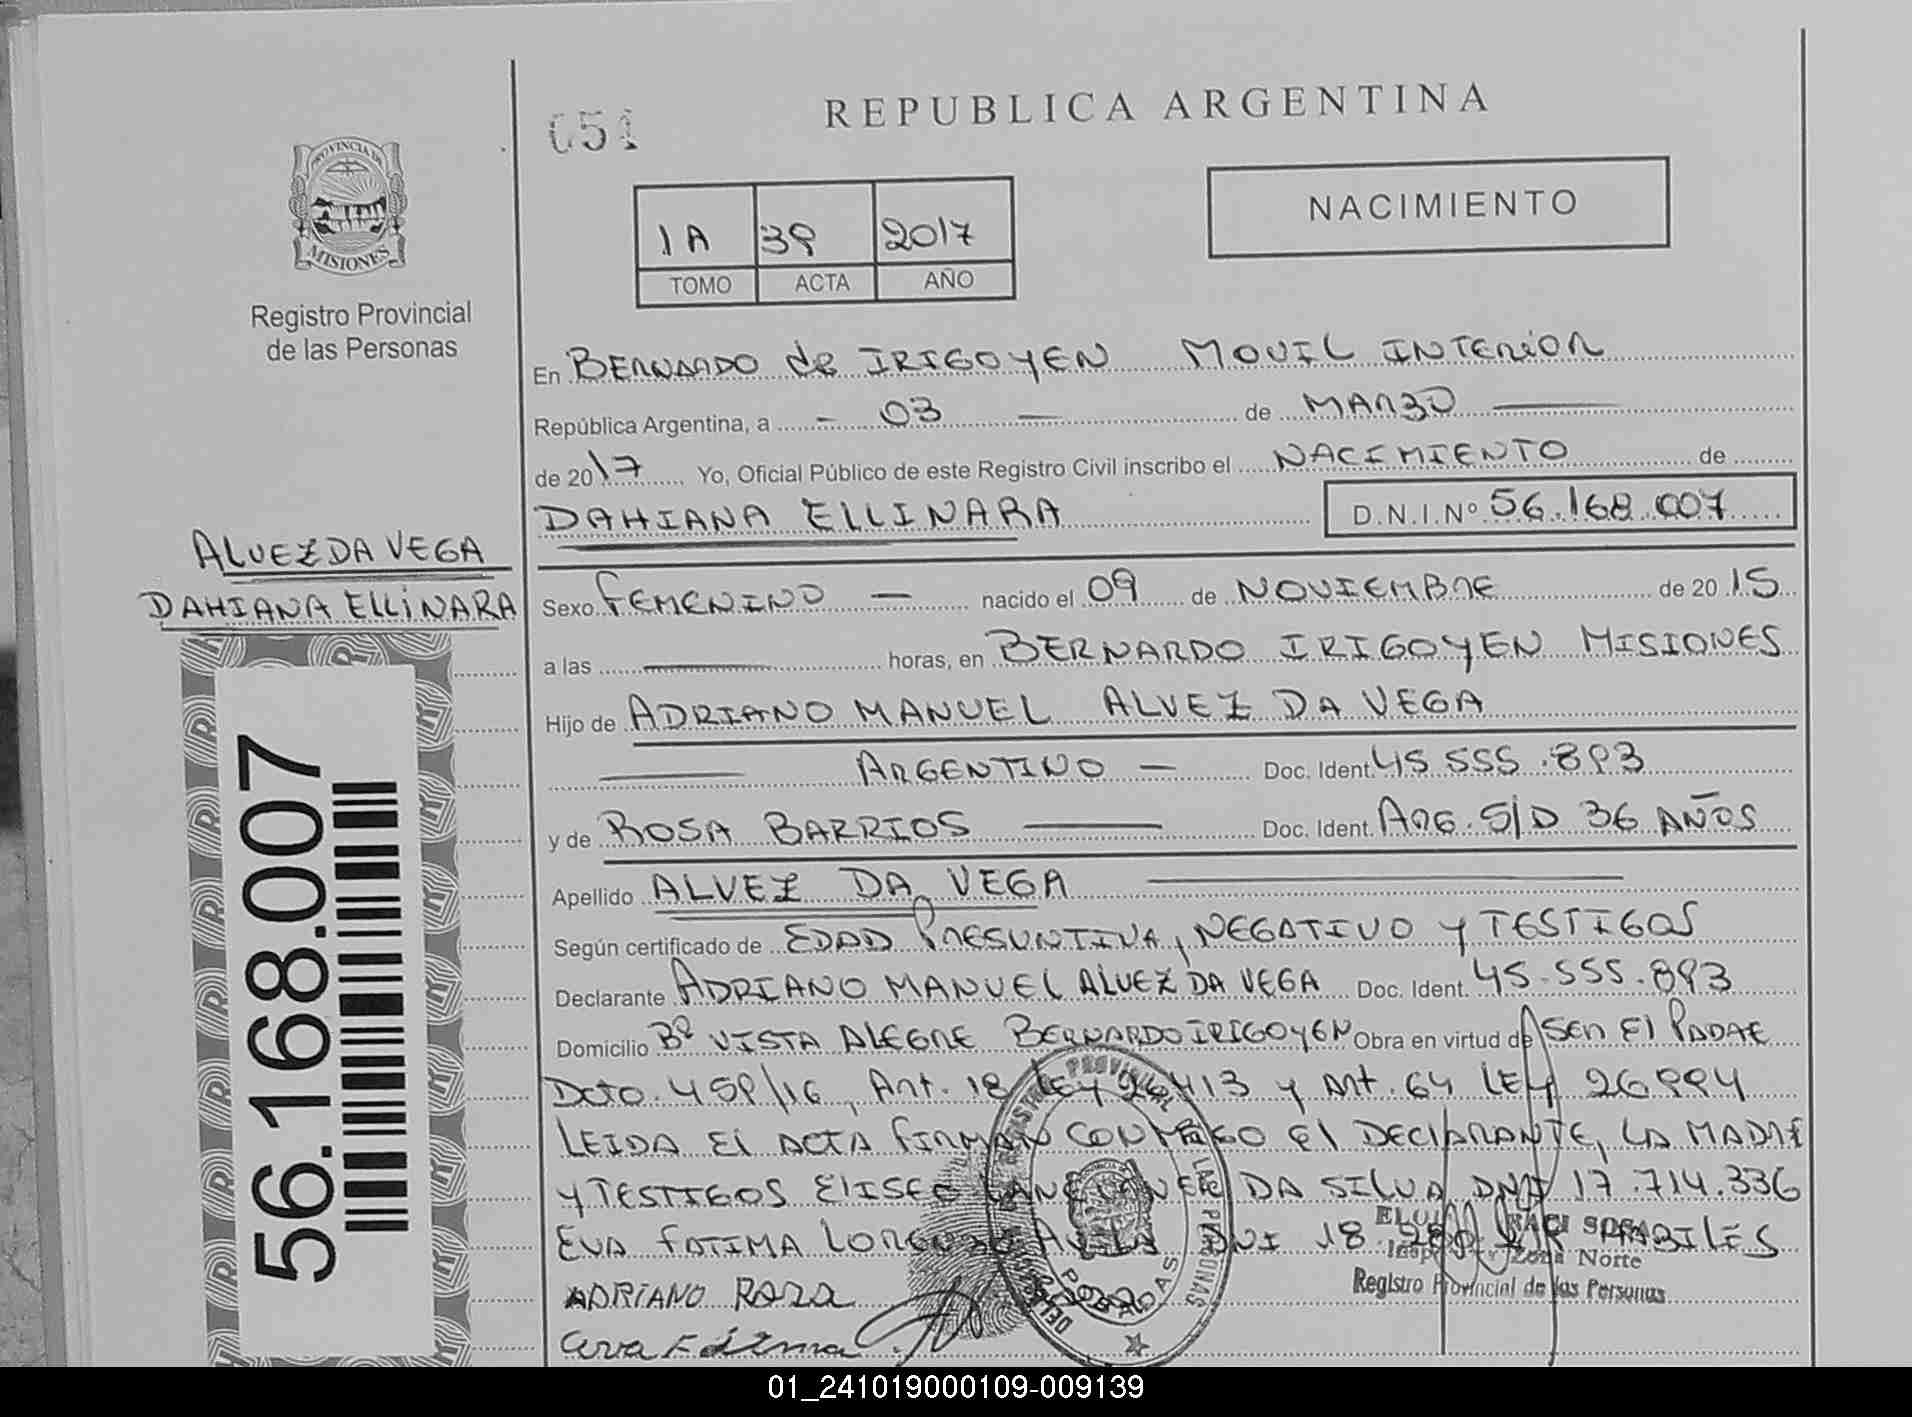 051
REPUBLICA ARGENTINA
PROVINCIA DE
MISIONES
Registro Provincial
de las Personas
1A 39 2017
TOMO ACTA AÑO
NACIMIENTO
En BERNARDO de IRIGOYEN MOVIL INTERIOR
República Argentina, a - 03 — de MARZO —
de 2017 Yo, Oficial Público de este Registro Civil inscribo el NACIMIENTO de
DAHIANA ELLINARA D.N.I.Nº 56.168.007
ALVEZ DA VEGA
DAHIANA ELLINARA
56.168.007
Sexo FEMENINO — nacido el 09 de NOVIEMBRE de 2015
a las — horas, en BERNARDO IRIGOYEN MISIONES
Hijo de ADRIANO MANUEL ALVEZ DA VEGA
— ARGENTINO — Doc. Ident. 45.555.893
y de ROSA BARRIOS — Doc. Ident. ARG. S/D 36 AÑOS
Apellido ALVEZ DA VEGA —
Según certificado de EDAD PRESUNTIVA, NEGATIVO Y TESTIGOS
Declarante ADRIANO MANUEL ALVEZ DA VEGA Doc. Ident. 45.555.893
Domicilio Bº VISTA ALEGRE BERNARDO IRIGOYEN Obra en virtud de SER El PADRE
Dcto. 459/16, Art. 18 LEY 26413 y Art. 64 LEY 26994
LEIDA El ACTA FIRMAN CONMIGO El DECLARANTE, LA MADRE
Y TESTIGOS ELISEO DA SILVA DNI 17.714.336
EVA FATIMA DNI 18. HABILES
Zona Norte
Registro Provincial de las Personas
ADRIANO ROSA